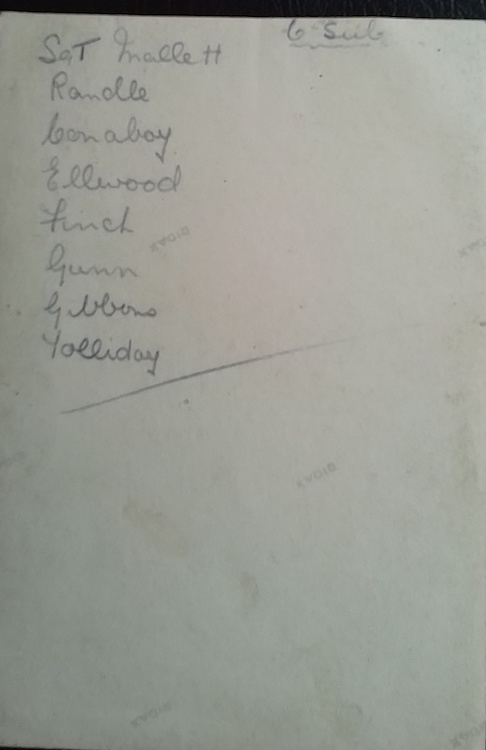 6 Sub
Sgt Mallett
Randle
Conaboy
Ellwood
Finch
Gunn
Gibbons
Tolliday
RIDAX
RIDAX
RIDAX